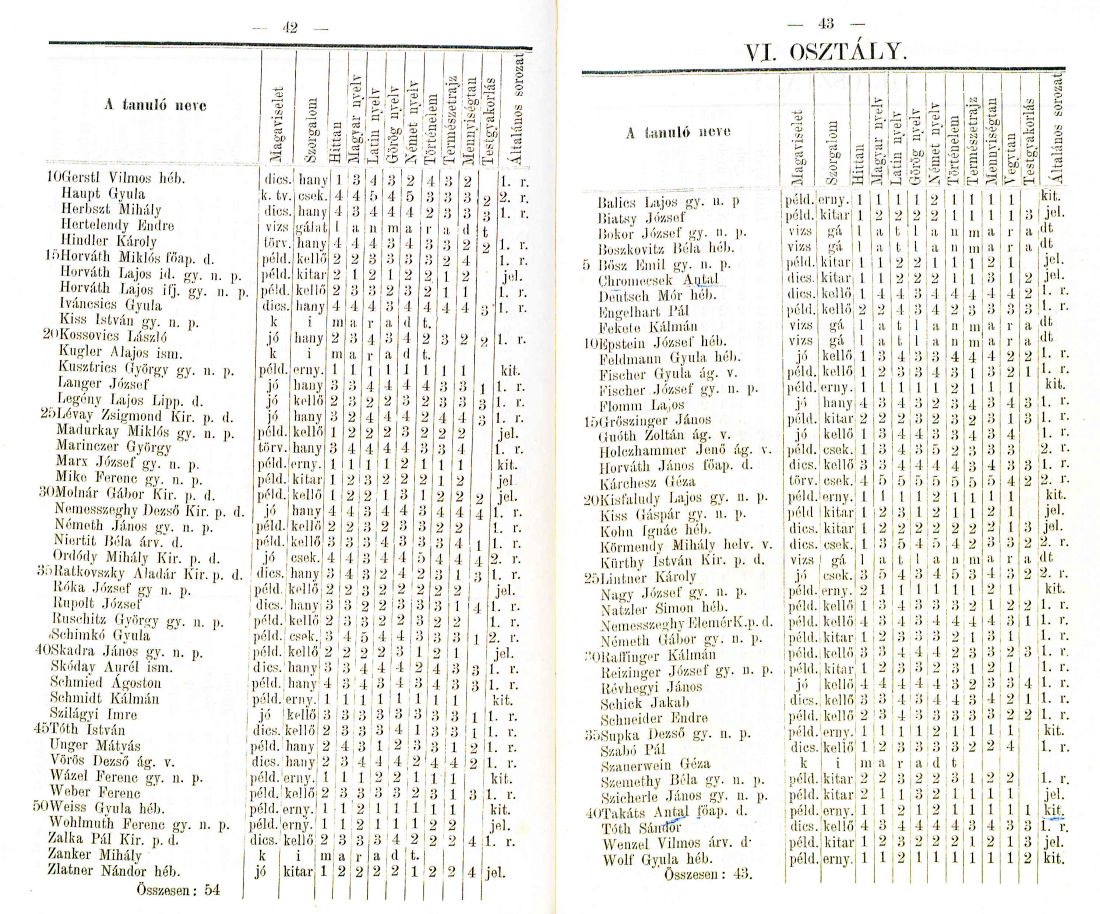 — 42 —
A tanuló neve Magaviselet Szorgalom Hittan Magyar nyelv Latin nyelv Görög nyelv Német nyelv Történelem Természetrajz Mennyiségtan Testgyakorlás Általános sorozat
10 Gerstl Vilmos héb. dics. hany 1 3 4 3 2 4 3 2 1. r.
Haupt Gyula k. tv. csek. 4 4 5 4 5 3 3 3 2 2. r.
Herbszt Mihály dics. hany 4 3 4 4 4 2 3 3 3 1. r.
Hertelendy Endre vizs gálat l a n m a r a d t
Hindler Károly törv. hany 4 4 4 3 4 3 3 2 2 1. r.
15 Horváth Miklós főap. d. péld. kellő 2 2 3 3 3 3 2 4 1. r.
Horváth Lajos id. gy. n. p. péld. kitar 2 1 2 1 2 2 1 2 jel.
Horváth Lajos ifj. gy. n. p. péld. kellő 2 3 3 2 3 2 1 1 1. r.
Iváncsics Gyula dics. hany 4 4 4 3 4 4 4 4 3 1. r.
Kiss István gy. n. p. k i m a r a d t.
20 Kossovics László jó hany 2 3 4 3 4 2 3 2 2 1. r.
Kugler Alajos ism. k i m a r a d t.
Kusztrics György gy. n. p. péld. erny. 1 1 1 1 1 1 1 1 kit.
Langer József jó hany 3 3 4 4 4 4 3 3 1 1. r.
Legény Lajos Lipp. d. jó kellő 2 3 2 2 3 2 3 3 3 1. r.
25 Lévay Zsigmond Kir. p. d. jó hany 3 2 4 4 4 2 4 4 3 1. r.
Madurkay Miklós gy. n. p. péld. kellő 1 2 2 2 3 2 2 2 jel.
Marinczer György törv. hany 3 4 4 4 4 3 3 4 1. r.
Marx József gy. n. p. péld. erny. 1 1 1 1 2 1 1 1 kit.
Mike Ferenc gy. n. p. péld. kitar 1 2 3 2 2 2 1 2 jel
30 Molnár Gábor Kir. p. d. péld. kellő 1 2 2 1 3 1 2 2 2 jel.
Nemesszeghy Dezső Kir. p. d. jó hany 4 4 3 4 4 3 4 4 4 1. r.
Németh János gy. n. p. péld. kellő 2 2 3 2 3 3 2 2 1. r.
Niertit Béla árv. d. péld. kellő 3 3 3 4 3 3 3 4 1 1. r.
Ordódy Mihály Kir. p. d. jó csek. 4 4 3 4 4 5 4 4 4 2. r.
35 Ratkovszky Aladár Kir. p. d. dics. hany 3 4 3 2 4 2 3 1 3 1. r.
Róka József gy n. p. péld. kellő 2 2 3 2 2 2 2 2 jel.
Rupolt József dics. hany 3 3 2 2 3 3 3 1 4 1. r.
Ruschitz György gy. n. p. péld. kellő 2 3 3 2 2 3 2 2 1. r.
Schimkó Gyula péld. csek. 3 4 5 4 4 3 3 3 1 2. r.
40 Skadra János gy. n. p. péld. kellő 2 2 2 2 3 1 2 1 jel.
Skóday Aurél ism. dics. hany 3 3 4 4 4 2 4 3 3 1. r.
Schmied Ágoston péld. hany 4 3 4 3 4 3 4 3 3 1. r.
Schmidt Kálmán péld. erny. 1 1 1 1 1 1 1 1 kit.
Szilágyi Imre jó kellő 3 3 3 3 3 3 3 3 1 1. r.
45 Tóth István dics. kellő 2 3 3 3 4 1 3 3 1 1. r.
Unger Mátyás péld. hany 2 4 3 1 2 3 3 1 2 1. r.
Vörös Dezső ág. v. dics. hany 2 3 4 4 4 2 4 4 2 1. r.
Wázel Ferenc gy. n. p. péld. erny. 1 1 1 2 2 1 1 1 kit.
Weber Ferenc péld. kellő 2 3 3 3 3 2 3 1 3 1. r.
50 Weiss Gyula héb. péld. erny. 1 1 2 1 1 1 1 1 kit.
Wohlmuth Ferenc gy. n. p. péld. erny. 1 1 2 1 1 1 2 2 jel.
Zalka Pál Kir. p. d. dics. kellő 2 3 3 3 4 2 2 2 4 1. r.
Zanker Mihály k i m a r a d t.
Zlatner Nándor héb. jó kitar 1 2 2 2 2 1 2 2 4 jel.
Összesen: 54
— 43 —
VI. OSZTÁLY.
A tanuló neve Magaviselet Szorgalom Hittan Magyar nyelv Latin nyelv Görög nyelv Német nyelv Történelem Természetrajz Mennyiségtan Vegytan Testgyakorlás Általános sorozat
Balics Lajos gy. n. p péld. erny. 1 1 1 1 2 1 1 1 1 kit.
Biatsy József péld. kitar 1 2 2 2 2 1 1 1 1 3 jel.
Bokor József gy. n. p. vizs gá l a t l a n m a r a dt
Boszkovitz Béla héb. vizs gá l a t l a n m a r a dt
5 Bősz Emil gy. n. p. péld. kitar 1 1 2 2 1 1 1 2 1 jel.
Chromecsek Antal dics. kitar 1 1 2 2 2 1 1 3 1 2 jel.
Deutsch Mór héb. dics. kellő 1 4 4 3 4 4 4 4 4 2 1. r.
Engelhart Pál péld. kellő 2 2 4 3 4 2 3 3 3 3 1. r.
Fekete Kálmán vizs gá l a t l a n m a r a dt
10 Epstein József héb. vizs gá l a t l a n m a r a dt
Feldmann Gyula héb. jó kellő 1 3 4 3 3 4 4 4 2 2 1. r.
Fischer Gyula ág. v. péld. kellő 1 2 3 3 4 3 1 3 2 1 1. r.
Fischer József gy. n. p. péld. erny. 1 1 1 1 1 2 1 1 1 kit.
Flomm Lajos jó hany 4 3 4 3 2 3 4 3 4 3 1. r.
15 Grőszinger János péld. kitar 2 2 2 3 2 3 2 3 1 3 1. r.
Guóth Zoltán ág. v. jó kellő 1 3 4 4 3 3 4 3 4 1. r.
Holczhammer Jenő ág. v. péld. csek. 1 3 4 3 5 2 3 3 3 2. r.
Horváth János főap. d. dics. kellő 3 3 4 4 4 4 3 4 3 3 1. r.
Kárchesz Géza törv. csek. 4 5 5 5 5 5 5 4 2 2. r.
20 Kisfaludy Lajos gy. n. p. péld. erny. 1 1 1 1 1 2 1 1 1 kit.
Kiss Gáspár gy. n. p. péld kitar 1 2 3 1 2 1 1 2 1 jel
Kohn Ignác héb. dics. kitar 1 2 2 2 2 2 2 2 1 3 jel.
Körmendy Mihály helv. v. dics. csek. 1 3 5 4 5 4 2 3 3 2 2. r.
Kürthy István Kir. p. d. vizs gá l a t l a n m a r a dt
25 Lintner Károly jó csek. 3 5 4 3 4 5 3 4 3 2 2. r.
Nagy József gy. n. p. péld. erny. 2 1 1 1 1 1 1 2 1 kit.
Natzler Simon héb. péld. kellő 1 3 4 3 3 3 2 1 2 2 1. r.
Nemesszeghy Elemér K. p. d. péld. kellő 4 3 4 3 4 4 4 4 3 1 1. r.
Németh Gábor gy. n. p. péld. kitar 1 2 3 3 3 2 1 3 1 1. r.
30 Raffinger Kálmán péld. kellő 4 3 4 3 4 2 3 3 2 3 1. r.
Reizinger József gy. n. p. péld. kitar 1 2 3 3 2 3 1 2 1 1. r.
Révhegyi János jó kellő 4 4 4 4 4 3 2 3 3 4 1. r.
Schick Jakab dics. kellő 3 3 4 4 4 3 3 4 2 1 1. r.
Schneider Endre péld. kellő 2 3 4 3 3 3 3 3 2 2 1. r.
35 Supka Dezső gy. n. p. péld. erny. 1 1 1 1 2 1 1 1 1 kit.
Szabó Pál dics. kellő 1 2 3 3 3 3 2 2 4 1. r.
Szauerwein Géza k i m a r a d t
Szemethy Béla gy. n. p. péld. kitar 2 2 3 2 2 3 1 2 2 1. r.
Szicherle János gy. n. p. péld. kitar 2 1 1 3 2 1 1 1 1 jel.
40 Takáts Antal főap. d. péld. erny. 1 1 2 1 2 1 1 1 1 1 kit.
Tóth Sándor dics. kellő 4 3 4 4 4 4 3 4 3 3 1. r.
Wenzel Vilmos árv. d. péld. kitar 1 2 3 2 2 2 1 2 1 3 jel.
Wolf Gyula héb. péld. erny. 1 1 2 1 1 1 1 1 1 2 kit.
Összesen: 43.